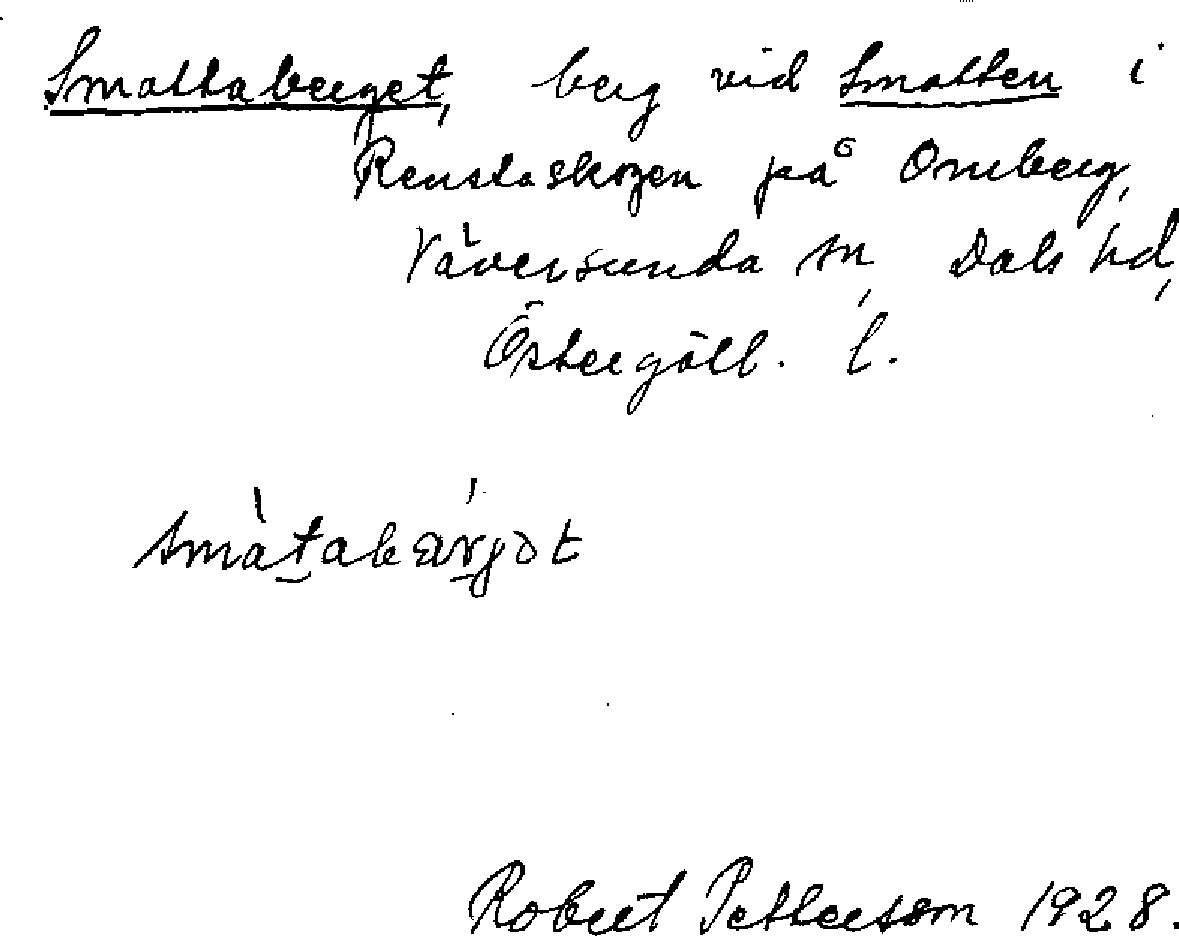 Smattaberget, berg vid Smatten i
Renstaskogen på Omberg,
Väversunda sn, Dals hd,
Östergötl. l.
smàt̠abärgət
Robert Petterson 1928.